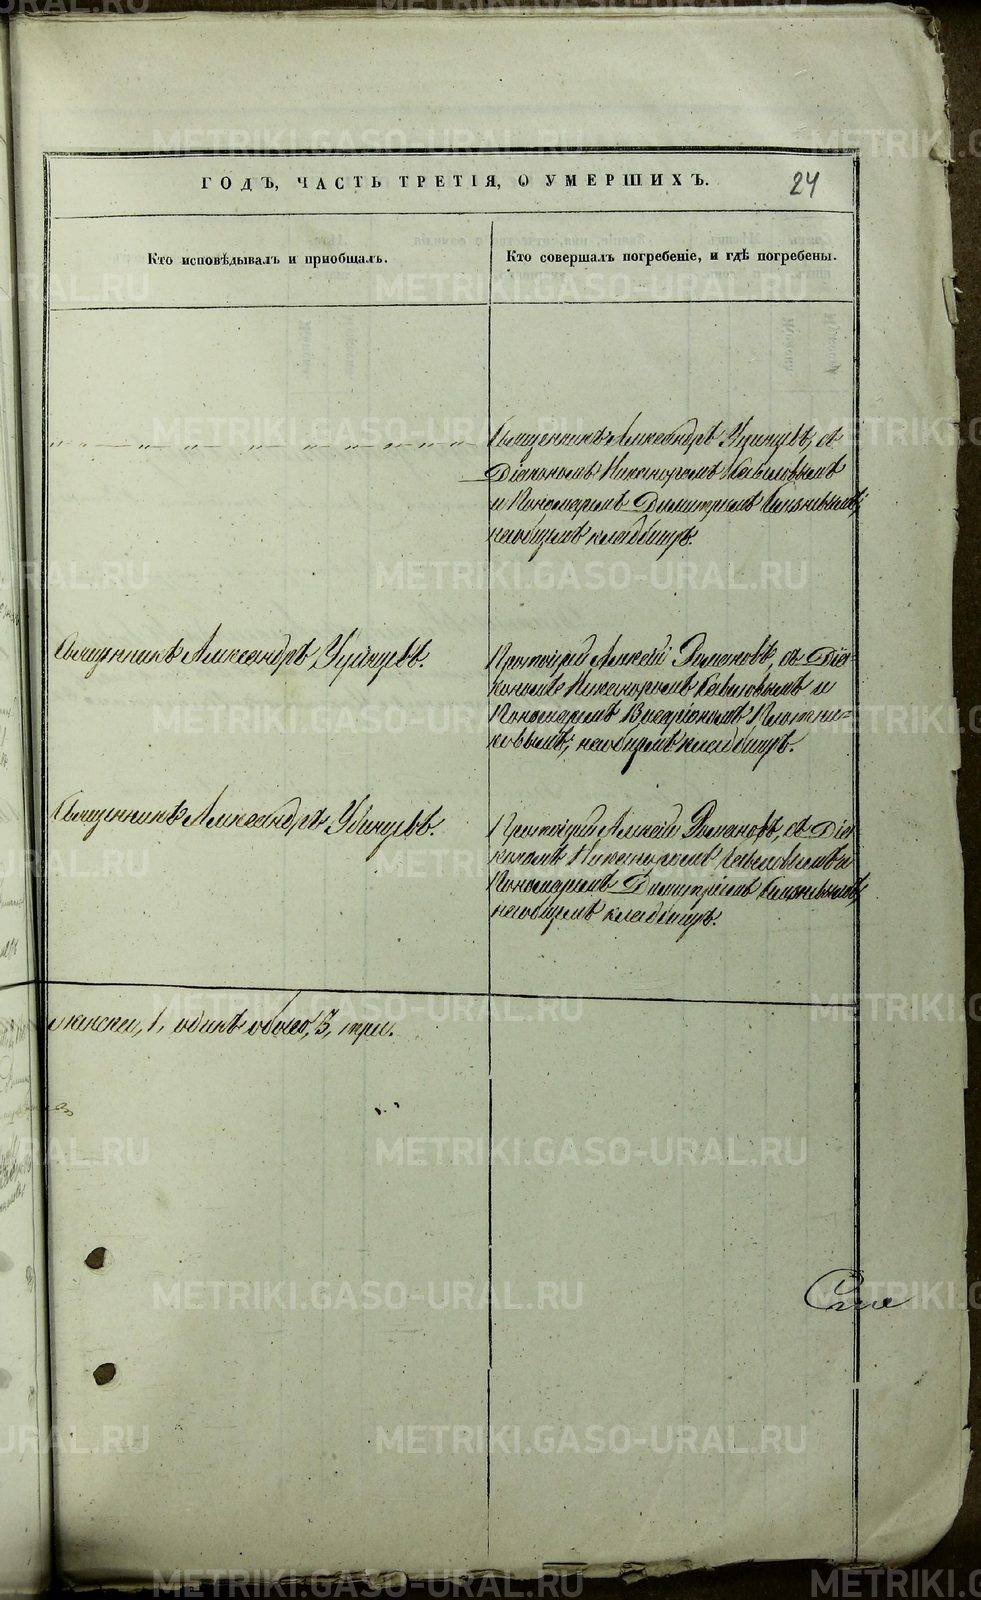 ГОДЪ, ЧАСТЬ ТРЕТІЯ, О УМЕРШИХЪ.
24
Кто исповѣдывалъ и приобщалъ.
Кто совершалъ погребеніе, и гдѣ погребены.
Священникъ Александръ Удинцевъ, съ
Діакономъ Никаноромъ
и Пономаремъ Димитріемъ
на общемъ кладбищѣ.
Священникъ Александръ Удинцевъ.
Протоіерей Алексій Романовъ, съ Діа-
кономъ Никаноромъ и
Пономаремъ Плотни=
ковымъ; на общемъ кладбищѣ.
Священникъ Александръ Удинцевъ.
Протоіерей Алексій Романовъ, съ Діа
кономъ Никаноромъ и
Пономаремъ Димитріемъ
на общемъ кладбищѣ.
женска, 1, одинъ обоего, 3, три.
METRIKI.GASO-URAL.RU